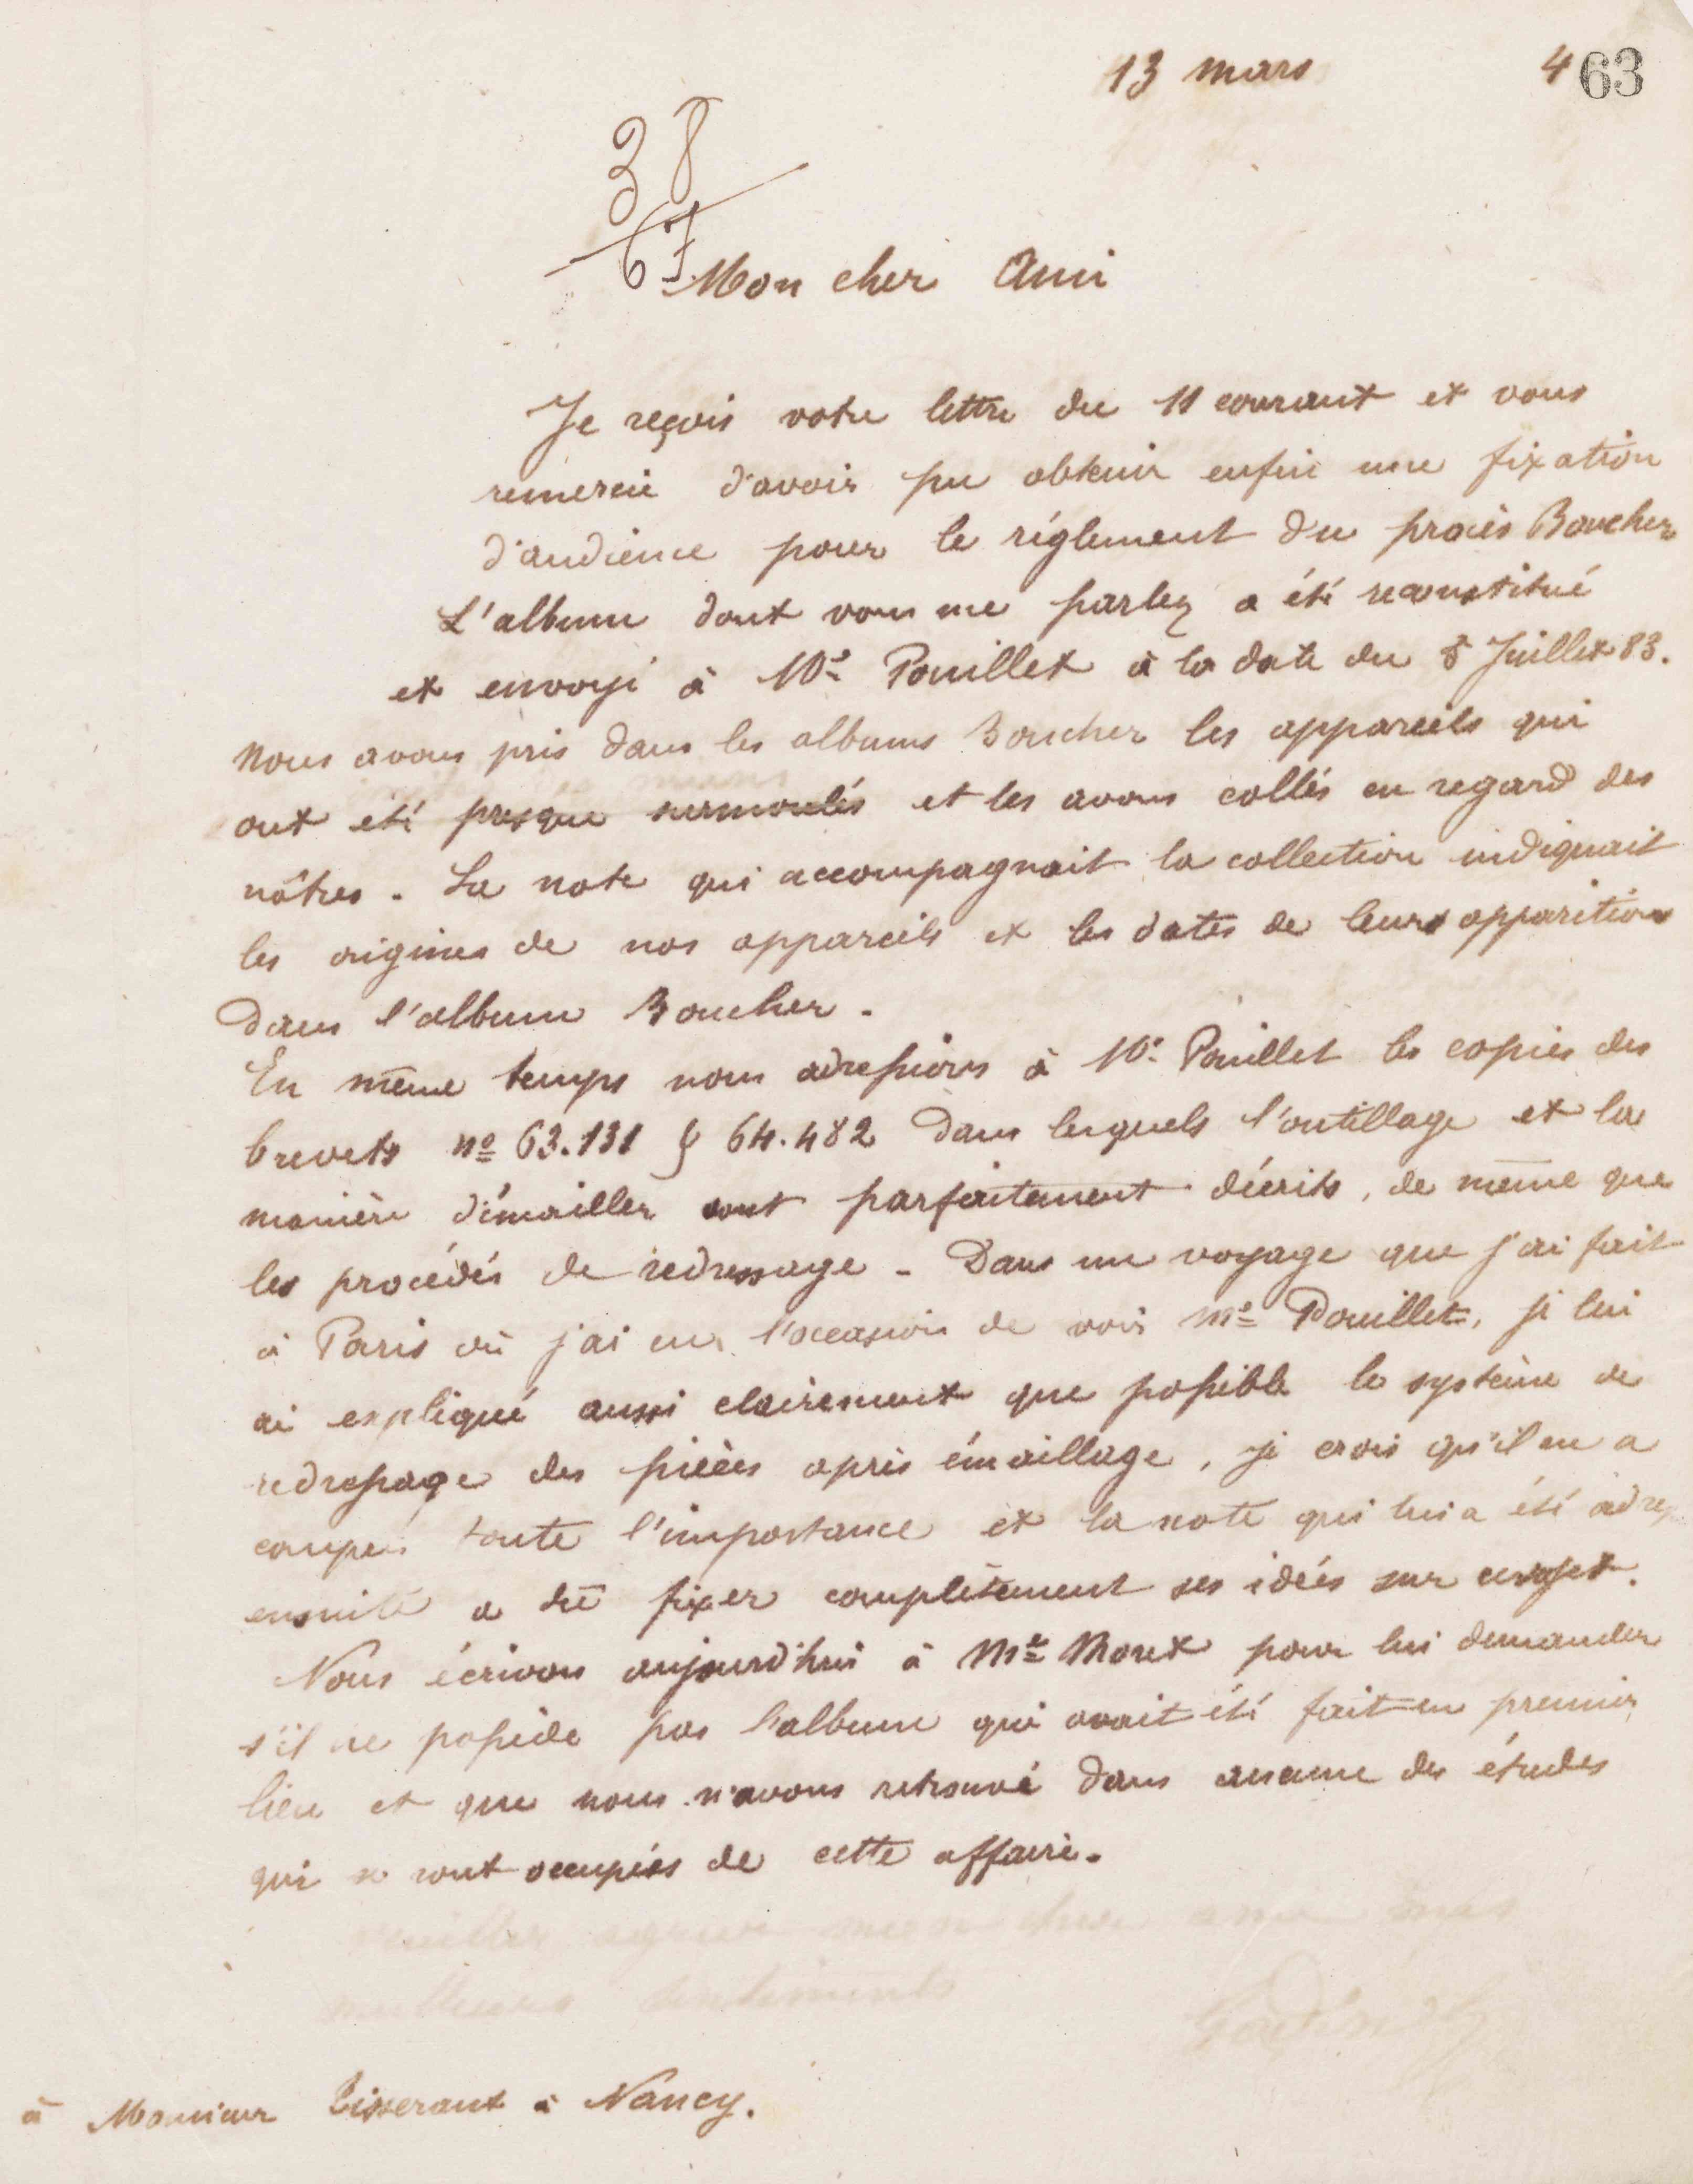 13 mars 4 63
38
67
Mon cher Ami
Je reçois votre lettre du 11 courant et vous
remercie d'avoir pu obtenir enfin une fixation
d'audience pour le réglement du procès Boucher
L'album dont vous me parlez a été reconstitué
et envoyé à Me Pouillet à la date du 5 Juillet 83.
Nous avons pris dans les albums Boucher les appareils qui
ont été presque surmoulés et les avons collés en regard des
nôtres. La note qui accompagnait la collection indiquait
les origines de nos appareils et les dates de leurs apparitions
dans l'album Boucher.
En même temps nous adressions à Me Pouillet les copies des
brevets no 63.131 & 64.482 dans lesquels l'outillage et la
manière d'émailler sont parfaitement décrits, de même que
les procédés de redressage. Dans un voyage que j'ai fait
à Paris où j'ai eu l'occasion de voir Me Pouillet, je lui
ai expliqué aussi clairement que possible le système de
redressage des pièces après émaillage, je crois qu'il en a
compris toute l'importance et la note qui lui a été adres
ensuite a dû fixer complètement ses idées sur ce sujet.
Nous écrivons aujourd'hui à Me Moret pour lui demander
s'il ne possède pas l'album qui avait été fait en premier
lieu et que nous n'avons retrouvé dans aucune des études
qui se sont occupées de cette affaire.
veuillez agréer mon cher ami mes
meilleurs sentiments
Godin
à Monsieur Tisserant à Nancy.